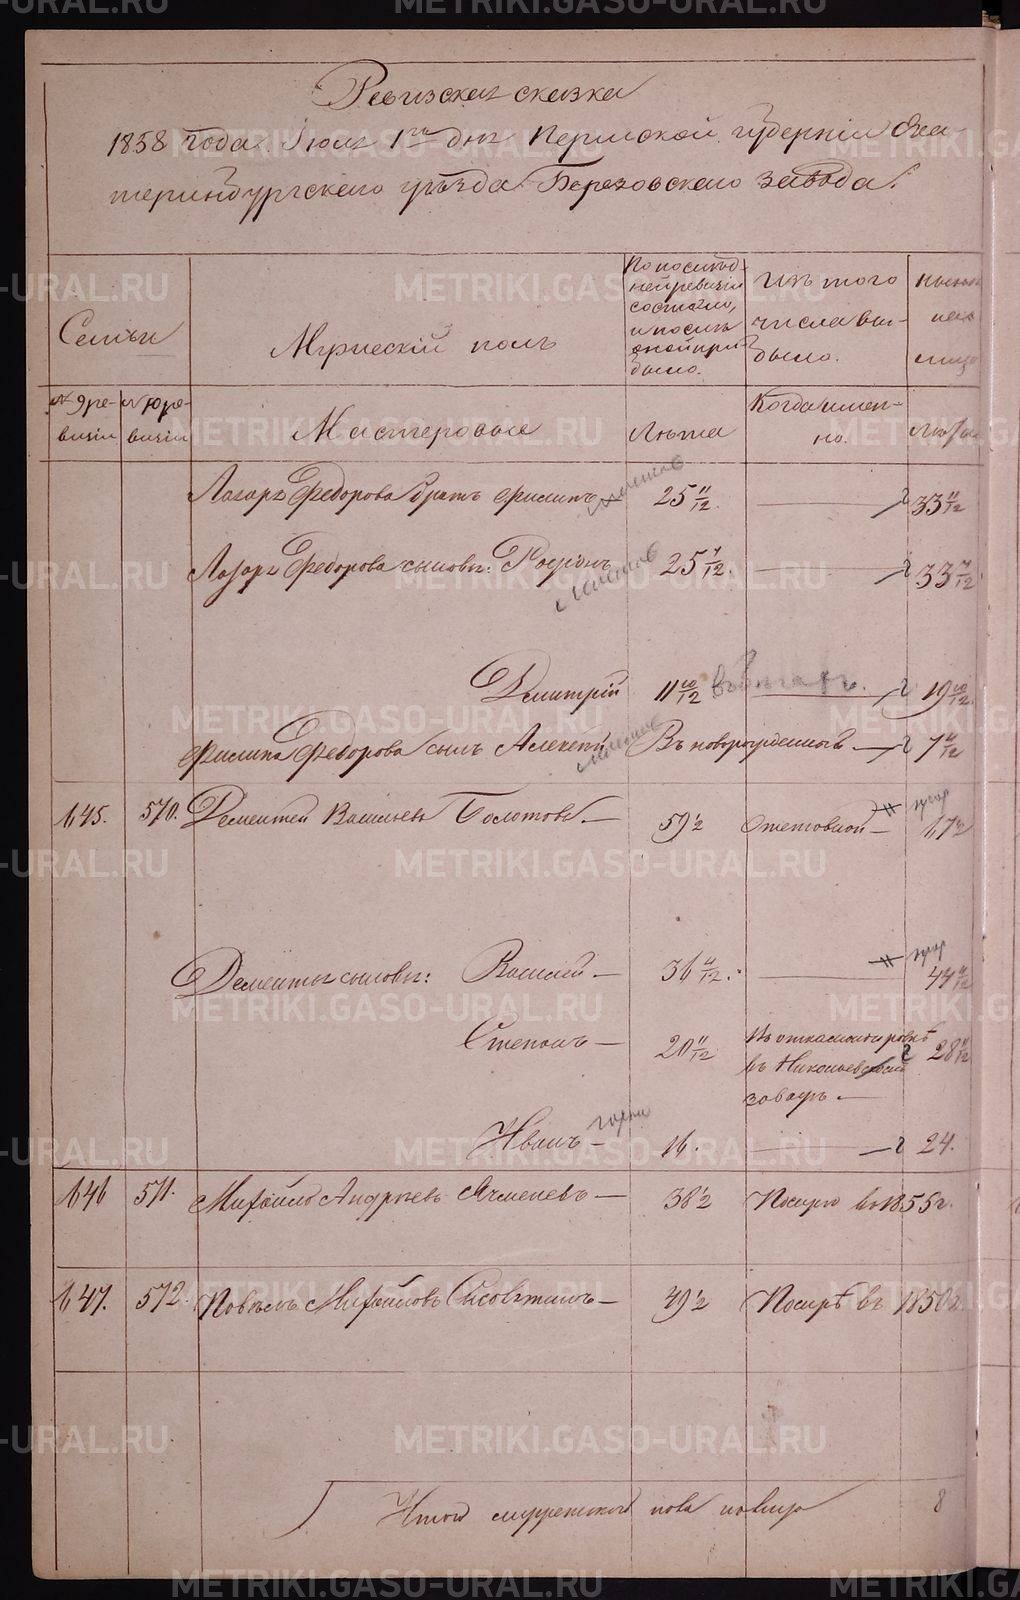 Ревизская сказка
1858 года Iюля 1го дня Пермской губернiи Ека-
теринбургскаго уѣзда Березовскаго завода.
Семьи
Мужескiй полъ
По послѣд-
ней ревизiи
состояло,
и послѣ
оной при-
было.
Изъ того
числа вы-
было.
Нынѣ
на
лицо
№ 9 ре-
визiи
№ 10 ре-
визiи
Мастеровые
Лѣта
Когда имен-
но.
Лѣта
Лазаря Федорова братъ Филипъ 25 11/12 33 11/12
Лазаря Федорова сыновья: Родiонъ 25 7/12. 33 7/12
Дмитрiй 11 10/12 19 10/12.
Филипа Федорова сынъ Алексѣй Въ новорожденной 7 11/12
645. 570. Дементей Васильевъ Болотовъ. — 59½ Отставной — 67½
Дементья сыновья: Василей — 36 11/12. 44 11/12
Степанъ — 20 11/12 28 11/12
въ Николаевской
заводъ —
Иванъ — 16. 24.
646 571. Михайло Андреевъ Ячменевъ — 38½ Померъ въ 1855 г.
647. 572. Михайловъ 49½ Померъ въ 1850 г.
Итого мужескаго пола на лицо 8
METRIKI.GASO-URAL.RU